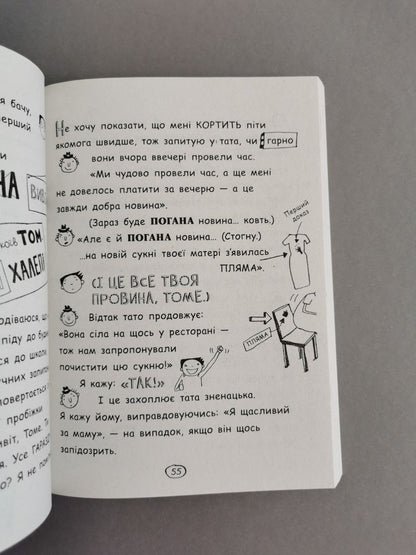 я бачу,
перший
и
НА
ТОМ
ХАЛЕП
піду до
ся до школи
повертається
пробіжки
Томе. Ти
Усе ГАРАЗД
Я не
Не хочу показати, що мені КОРТИТЬ піти
якомога швидше, тож запитую у тата, чи гарно
вони вчора ввечері провели час.
«Ми чудово провели час, а ще мені
не довелось платити за вечерю – а це
завжди добра новина».
(Зараз буде ПОГАНА новина... ковть.)
«Але є й ПОГАНА новина... (Стогну.)
...на новій сукні твоєї матері з'явилась
ПЛЯМА».
Перший
доказ
(І ЦЕ ВСЕ ТВОЯ
ПРОВИНА, ТОМЕ.)
Відтак тато продовжує:
«Вона сіла на щось у ресторані –
тож нам запропонували
почистити цю сукню!»
ПЛЯМА
Я кажу: «ТАК!»
І це захоплює тата зненацька.
Я кажу йому, виправдовуючись: «Я щасливий
за маму», – на випадок, якщо він щось
запідозрить.
55